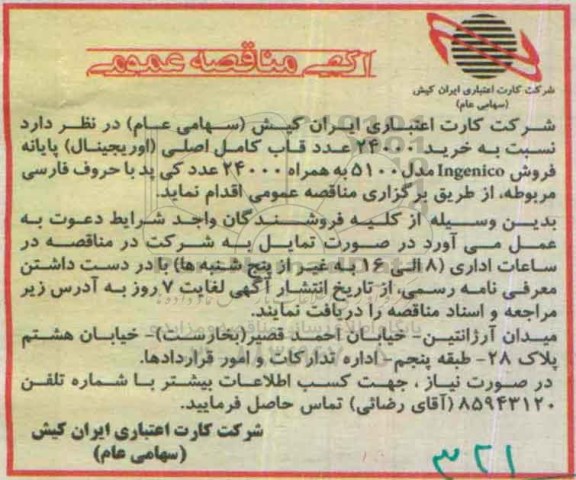 شرکت کارت اعتباری ایران کیش
(سهامی عام)
آگهی مناقصه عمومی
شرکت کارت اعتباری ایران کیش (سهامی عام) در نظر دارد
نسبت به خرید ۲۴۰۰۰ عدد قاب کامل اصلی (اوریجینال) پایانه
فروش Ingenico مدل ۵۱۰۰ به همراه ۲۴۰۰۰ عدد کی پد با حروف فارسی
مربوطه، از طریق برگزاری مناقصه عمومی اقدام نماید.
بدین وسیله از کلیه فروشندگان واجد شرایط دعوت به
عمل می آورد در صورت تمایل به شرکت در مناقصه در
ساعات اداری (۸ الی ۱۶ به غیر از پنج شنبه ها) با در دست داشتن
معرفی نامه رسمی، از تاریخ انتشار آگهی لغایت ۷ روز به آدرس زیر
مراجعه و اسناد مناقصه را دریافت نمایند.
میدان آرژانتین- خیابان احمد قصیر(بخارست)- خیابان هشتم
پلاک ۲۸- طبقه پنجم- اداره تدارکات و امور قراردادها.
در صورت نیاز ، جهت کسب اطلاعات بیشتر با شماره تلفن
۸۵۹۴۳۱۲۰ (آقای رضائی) تماس حاصل فرمایید.
شرکت کارت اعتباری ایران کیش
(سهامی عام)
۳۲۱